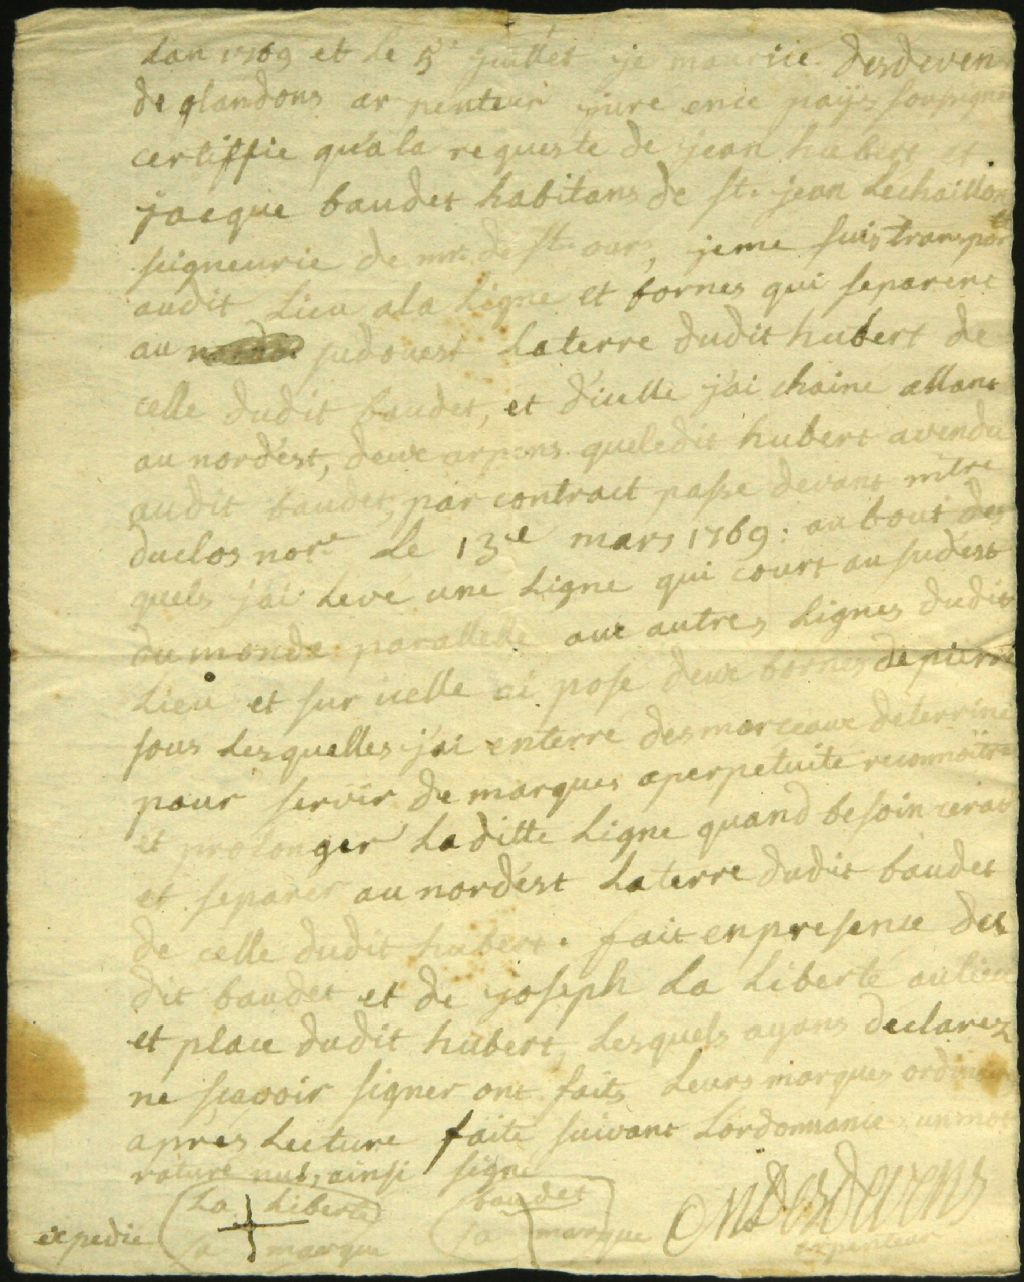 Lan 1769 et le 5e juillet je maurice desdeven
de glandons arpenteur jure ence païs soussigné
certiffie qu'ala requeste de jean hubert et
jacque baudet habitans de st. jean Lechaillon
seigneurie de mr. de st. ours, jeme suis transporté
audit Lieu ala Ligne et bornes qui separent
au sudouest Laterre dudit hubert de
celle dudit baudet, et d'icelle j'ai chaine allant
au nordést, deux arpens queledit hubert avendu
audit baudet, par contract passe devant mtre
duclos nore. Le 13e mars 1769: au bout des
quels j'ai Levé une Ligne qui court au sudést
du monde parallelle aux autres Lignes dudit
Lieu et sur icelle ai posé deux bornes de pierre
sous Lesquelles j'ai enterré des morceaux deterrine
pour servir de marques aperpetuité reconnoïtre
et prolonger Laditte Ligne quand besoin cerat
et separer au nordést Laterre dudit baudet
de celle dudit hubert. fait enpresence des
dit baudet et de joseph La Liberté aulieu
et place dudit hubert, Lesquels ayans declarez
ne sçavoir signer ont faits Leurs marques ordinaires
aprés Lecture faite suivant Lordonnance, un mot
raturé nul, ainsi signé
La Liberté baudet
expedié sa marque sa marque Mdesdevens
arpenteur